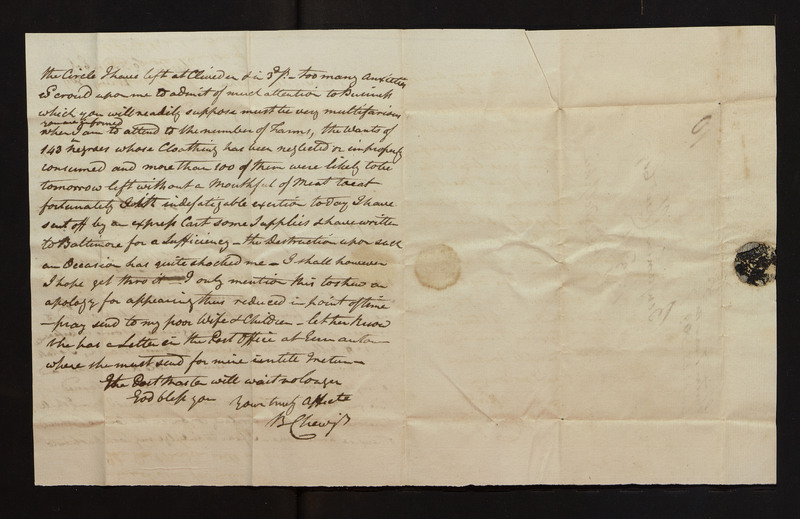 the Circle I have left at Cliveden & in 3d St – too many Anxieties
Croud upon me to admit of much attention to Business
which you will readily suppose must be very multifarious
you are informed
when I am to attend to the number of Farms, the Wants of
143 negroes whose Cloathing has been neglected or improperly
consumed and more than 100 of them were likely to be
tomorrow left without a Mouthful of Meat to eat
fortunately with indefatigable exertion to Day I have
sent off by an express Cart some Supplies & have written
to Baltimore for a Sufficiency – the Destruction upon such
an Occasion has quite shocked me – I shall however
I hope get thro it – I only mention this to shew an
apology for appearing thus reduced in point of time
– pray send to my poor Wife & Children – let her know
she has a Letter in the Post Office at Germanton
where she must send for mine until I return –
The Post Master will wait no longer
God bless you your truly Affecte
B Chew Jr